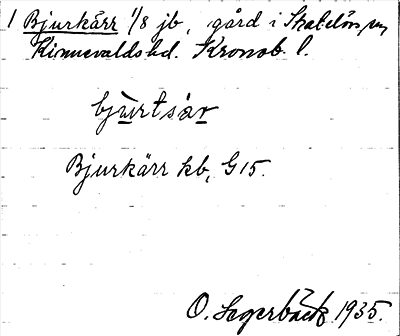 1 Bjurkärr 1/8 jb, gård i Skatelövs sn
Kinnevalds hd. Kronob. l.
bjūrtsàr
Bjurkärr kb, G15.
O. Segerbäck 1935.